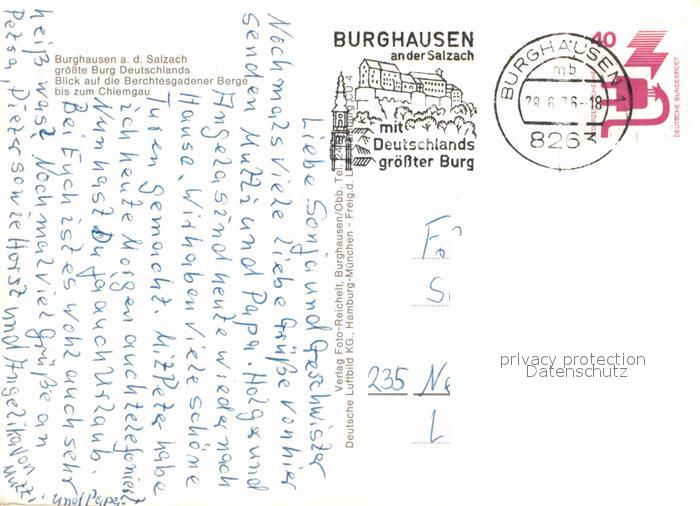 Burghausen a. d. Salzach
größte Burg Deutschlands
Blick auf die Berchtesgadener Berge
bis zum Chiemgau
Liebe Sonja und Geschwister
Nochmals viele liebe Grüße von hier
senden Mutti und Papa. Holger und
Angela sind heute wieder nach
Hause. Wir haben viele schöne
Touren gemacht. Mit Peter habe
ich heute Morgen auch telefoniert
Nun hast Du ja auch Urlaub.
Bei Euch ist es wohl auch sehr
heiß was? Nochmal viel Grüße an
Petra, Dieter sowie Horst und Angelika von
Mutti und Papa.
Verlag Foto-Reichelt, Burghausen/Obb. Tel.
Deutsche Luftbild KG., Hamburg-München - Freig. d. L
BURGHAUSEN
an der Salzach
mit
Deutschlands
größter Burg
BURGHAUSEN 1
mb
28.6.76-18
8263
40
DEUTSCHE BUNDESPOST
235 Ne
privacy protection
Datenschutz